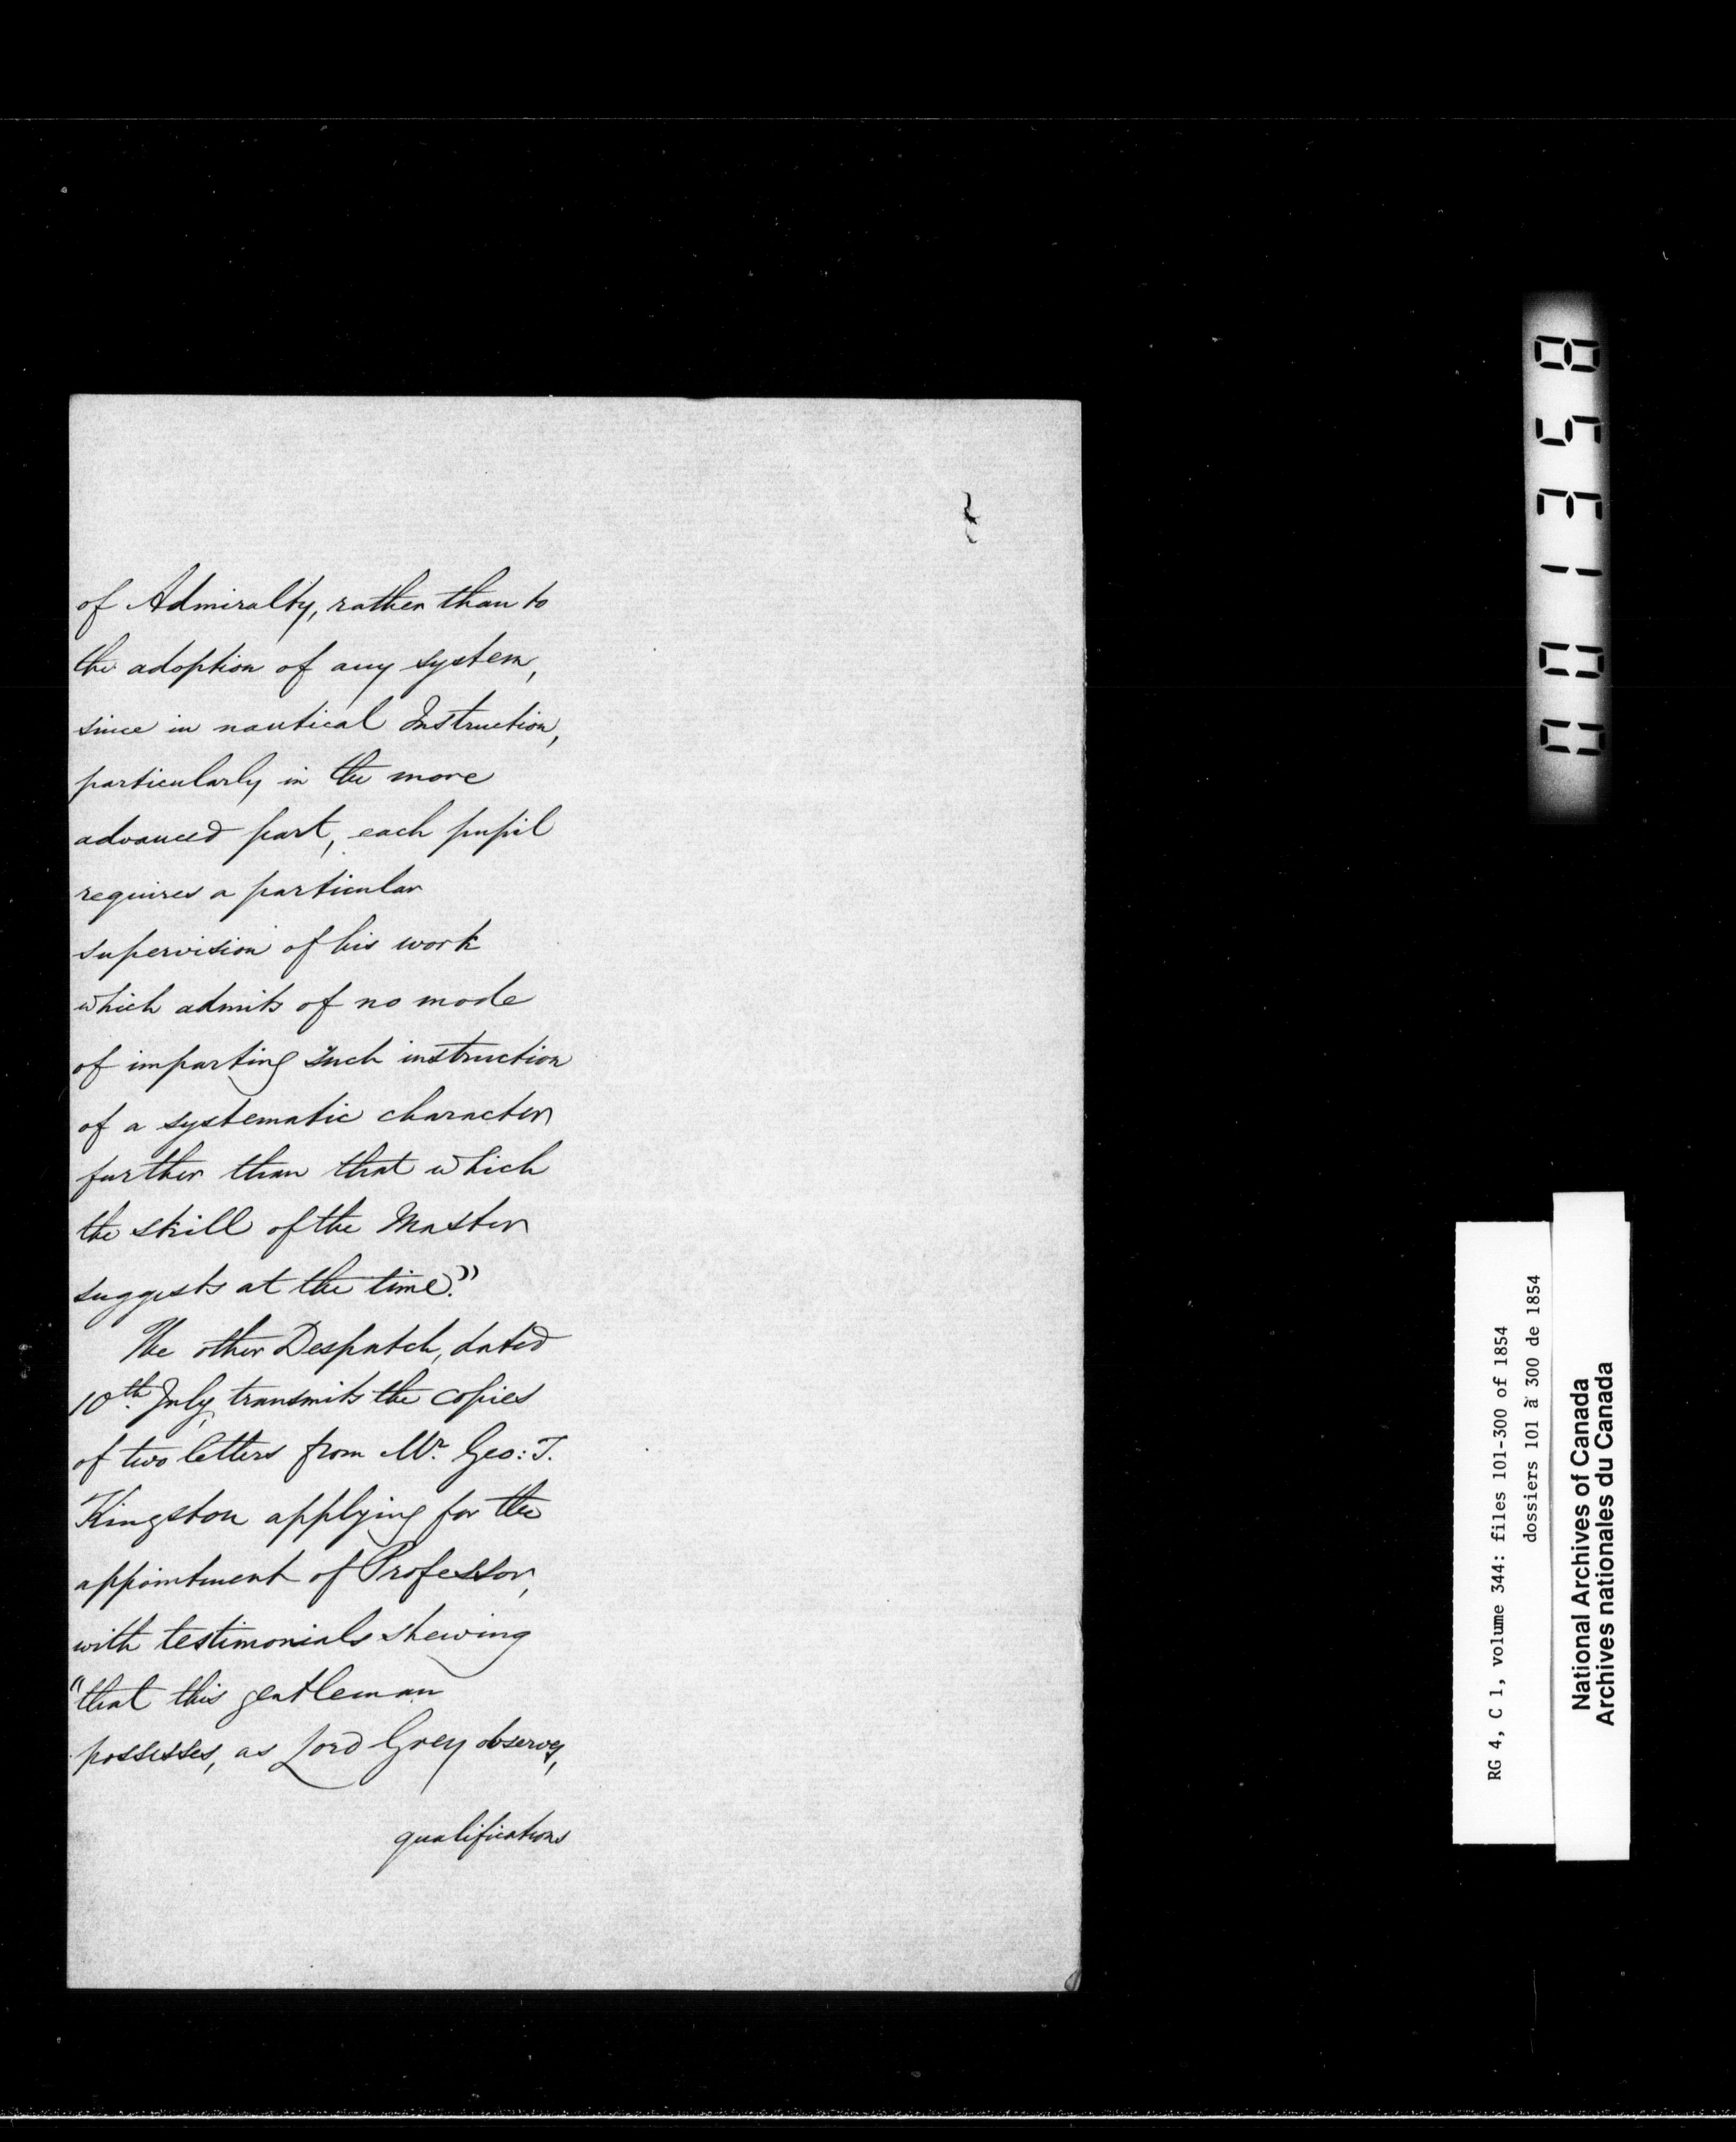 of Admiralty, rather than to
the adoption of any system,
since in nautical Instruction,
particularly in the more
advanced part, each pupil
requires a particular
supervision of his work
which admits of no mode
of imparting such instruction
of a systematic character
further than that which
the skill of the Master
suggests at the time."
The other Despatch, dated
10th. July, transmits the copies
of two letters from Mr. Geo: T.
Kingston applying for the
appointment of Professor,
with testimonials shewing
"that this gentleman
possesses, as Lord Grey observes,
qualifications
001358
RG 4, C 1, volume 344: files 101-300 of 1854
dossiers 101 à 300 de 1854
National Archives of Canada
Archives nationales du Canada